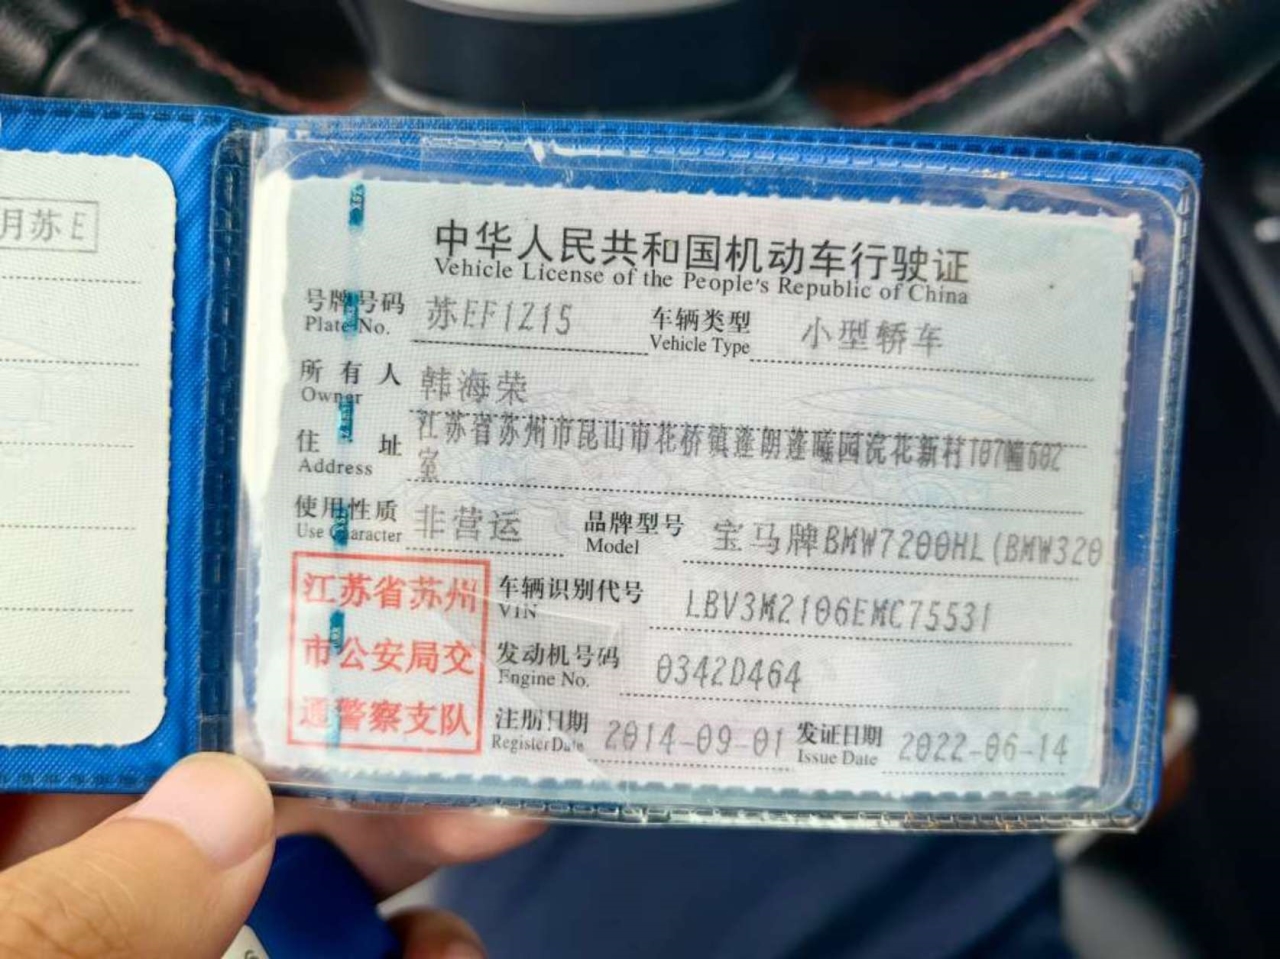 月苏E
中华人民共和国机动车行驶证
Vehicle License of the People's Republic of China
号牌号码 苏EF1Z15 车辆类型 小型轿车
Plate No. Vehicle Type
所有人 韩海荣
Owner
住址 江苏省苏州市昆山市花桥镇蓬朗蓬曦园浣花新村T07幢602
Address 室
使用性质 非营运 品牌型号 宝马牌BMW7200HL(BMW320
Use Character Model
江苏省苏州 车辆识别代号 LBV3M2106EMC75531
VIN
市公安局交 发动机号码 0342D464
Engine No.
通警察支队 注册日期 2014-09-01 发证日期 2022-06-14
Register Date Issue Date